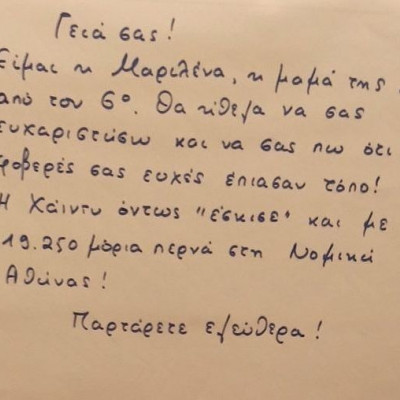 Γειά σας!
Είμαι η Μαριλένα, η μαμά της
από τον 6ο. Θα ήθελα να σας
ευχαριστήσω και να σας πω ότι
φοβερές σας ευχές έπιασαν τόπο!
Η Χάιντυ όντως "έσκισε" και με
19.250 μόρια περνά στη Νομική
Αθήνας!
Παρτάρετε ελεύθερα!